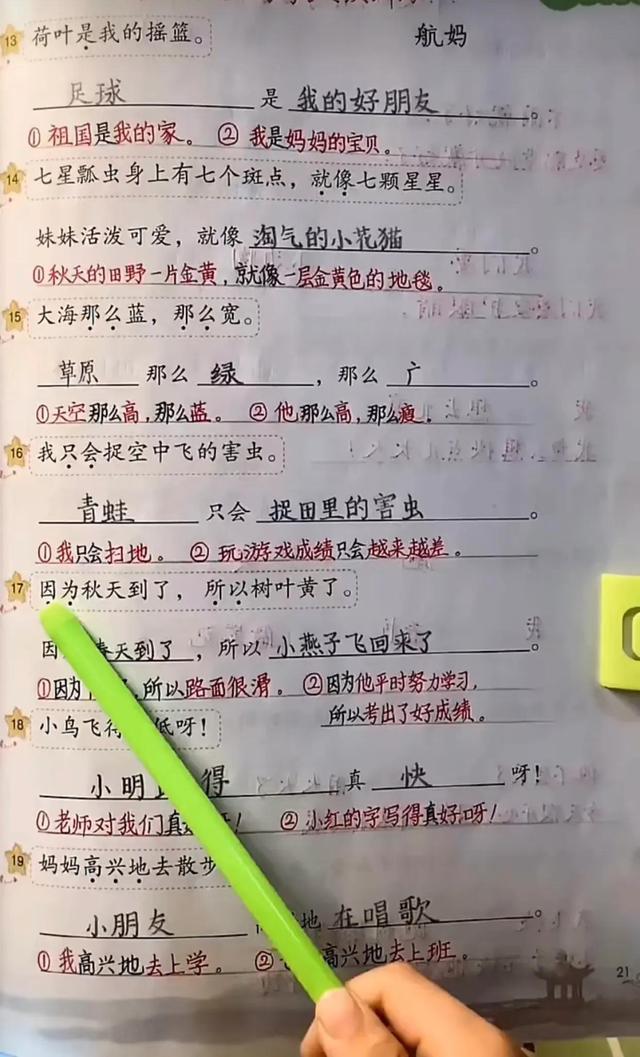 13 荷叶是我的摇篮。
航妈
足球 是 我的好朋友。
①祖国是我的家。 ②我是妈妈的宝贝。
14 七星瓢虫身上有七个斑点，就像七颗星星。
妹妹活泼可爱，就像 淘气的小花猫。
①秋天的田野一片金黄，就像一层金黄色的地毯。
15 大海那么蓝，那么宽。
草原 那么 绿，那么 广。
①天空那么高，那么蓝。 ②他那么高，那么瘦。
16 我只会捉空中飞的害虫。
青蛙 只会 捉田里的害虫。
①我只会扫地。 ②玩游戏成绩只会越来越差。
17 因为秋天到了，所以树叶黄了。
因 春天到了，所以 小燕子飞回来了。
①因为 ，所以路面很滑。 ②因为他平时努力学习，
所以考出了好成绩。
18 小鸟飞得 低呀！
小明 得 真 快 呀！
①老师对我们真 ！ ②小红的字写得真好呀！
19 妈妈高兴地去散步
小朋友 地 在唱歌。
①我高兴地去上学。 ② 高兴地去上班。
21